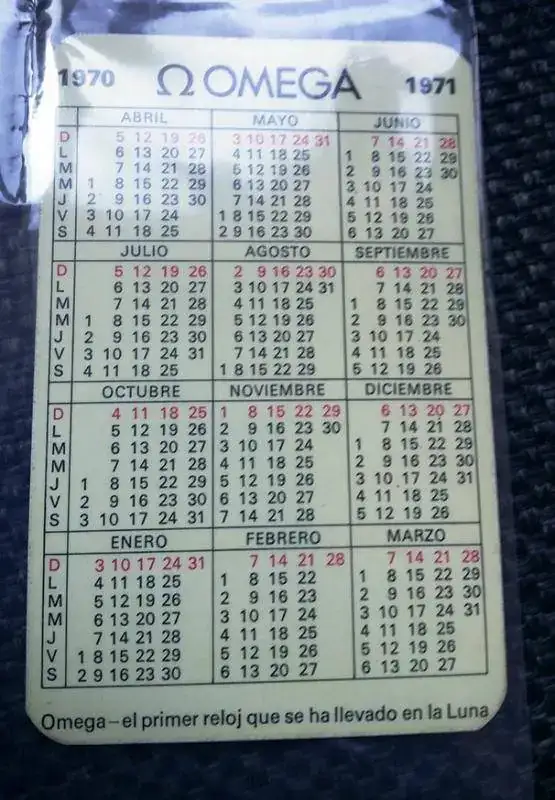 1970 Ω OMEGA 1971
ABRIL MAYO JUNIO
D 5 12 19 26 3 10 17 24 31 7 14 21 28
L 6 13 20 27 4 11 18 25 1 8 15 22 29
M 7 14 21 28 5 12 19 26 2 9 16 23 30
M 1 8 15 22 29 6 13 20 27 3 10 17 24
J 2 9 16 23 30 7 14 21 28 4 11 18 25
V 3 10 17 24 1 8 15 22 29 5 12 19 26
S 4 11 18 25 2 9 16 23 30 6 13 20 27
JULIO AGOSTO SEPTIEMBRE
D 5 12 19 26 2 9 16 23 30 6 13 20 27
L 6 13 20 27 3 10 17 24 31 7 14 21 28
M 7 14 21 28 4 11 18 25 1 8 15 22 29
M 1 8 15 22 29 5 12 19 26 2 9 16 23 30
J 2 9 16 23 30 6 13 20 27 3 10 17 24
V 3 10 17 24 31 7 14 21 28 4 11 18 25
S 4 11 18 25 1 8 15 22 29 5 12 19 26
OCTUBRE NOVIEMBRE DICIEMBRE
D 4 11 18 25 1 8 15 22 29 6 13 20 27
L 5 12 19 26 2 9 16 23 30 7 14 21 28
M 6 13 20 27 3 10 17 24 1 8 15 22 29
M 7 14 21 28 4 11 18 25 2 9 16 23 30
J 1 8 15 22 29 5 12 19 26 3 10 17 24 31
V 2 9 16 23 30 6 13 20 27 4 11 18 25
S 3 10 17 24 31 7 14 21 28 5 12 19 26
ENERO FEBRERO MARZO
D 3 10 17 24 31 7 14 21 28 7 14 21 28
L 4 11 18 25 1 8 15 22 1 8 15 22 29
M 5 12 19 26 2 9 16 23 2 9 16 23 30
M 6 13 20 27 3 10 17 24 3 10 17 24 31
J 7 14 21 28 4 11 18 25 4 11 18 25
V 1 8 15 22 29 5 12 19 26 5 12 19 26
S 2 9 16 23 30 6 13 20 27 6 13 20 27
Omega-el primer reloj que se ha llevado en la Luna